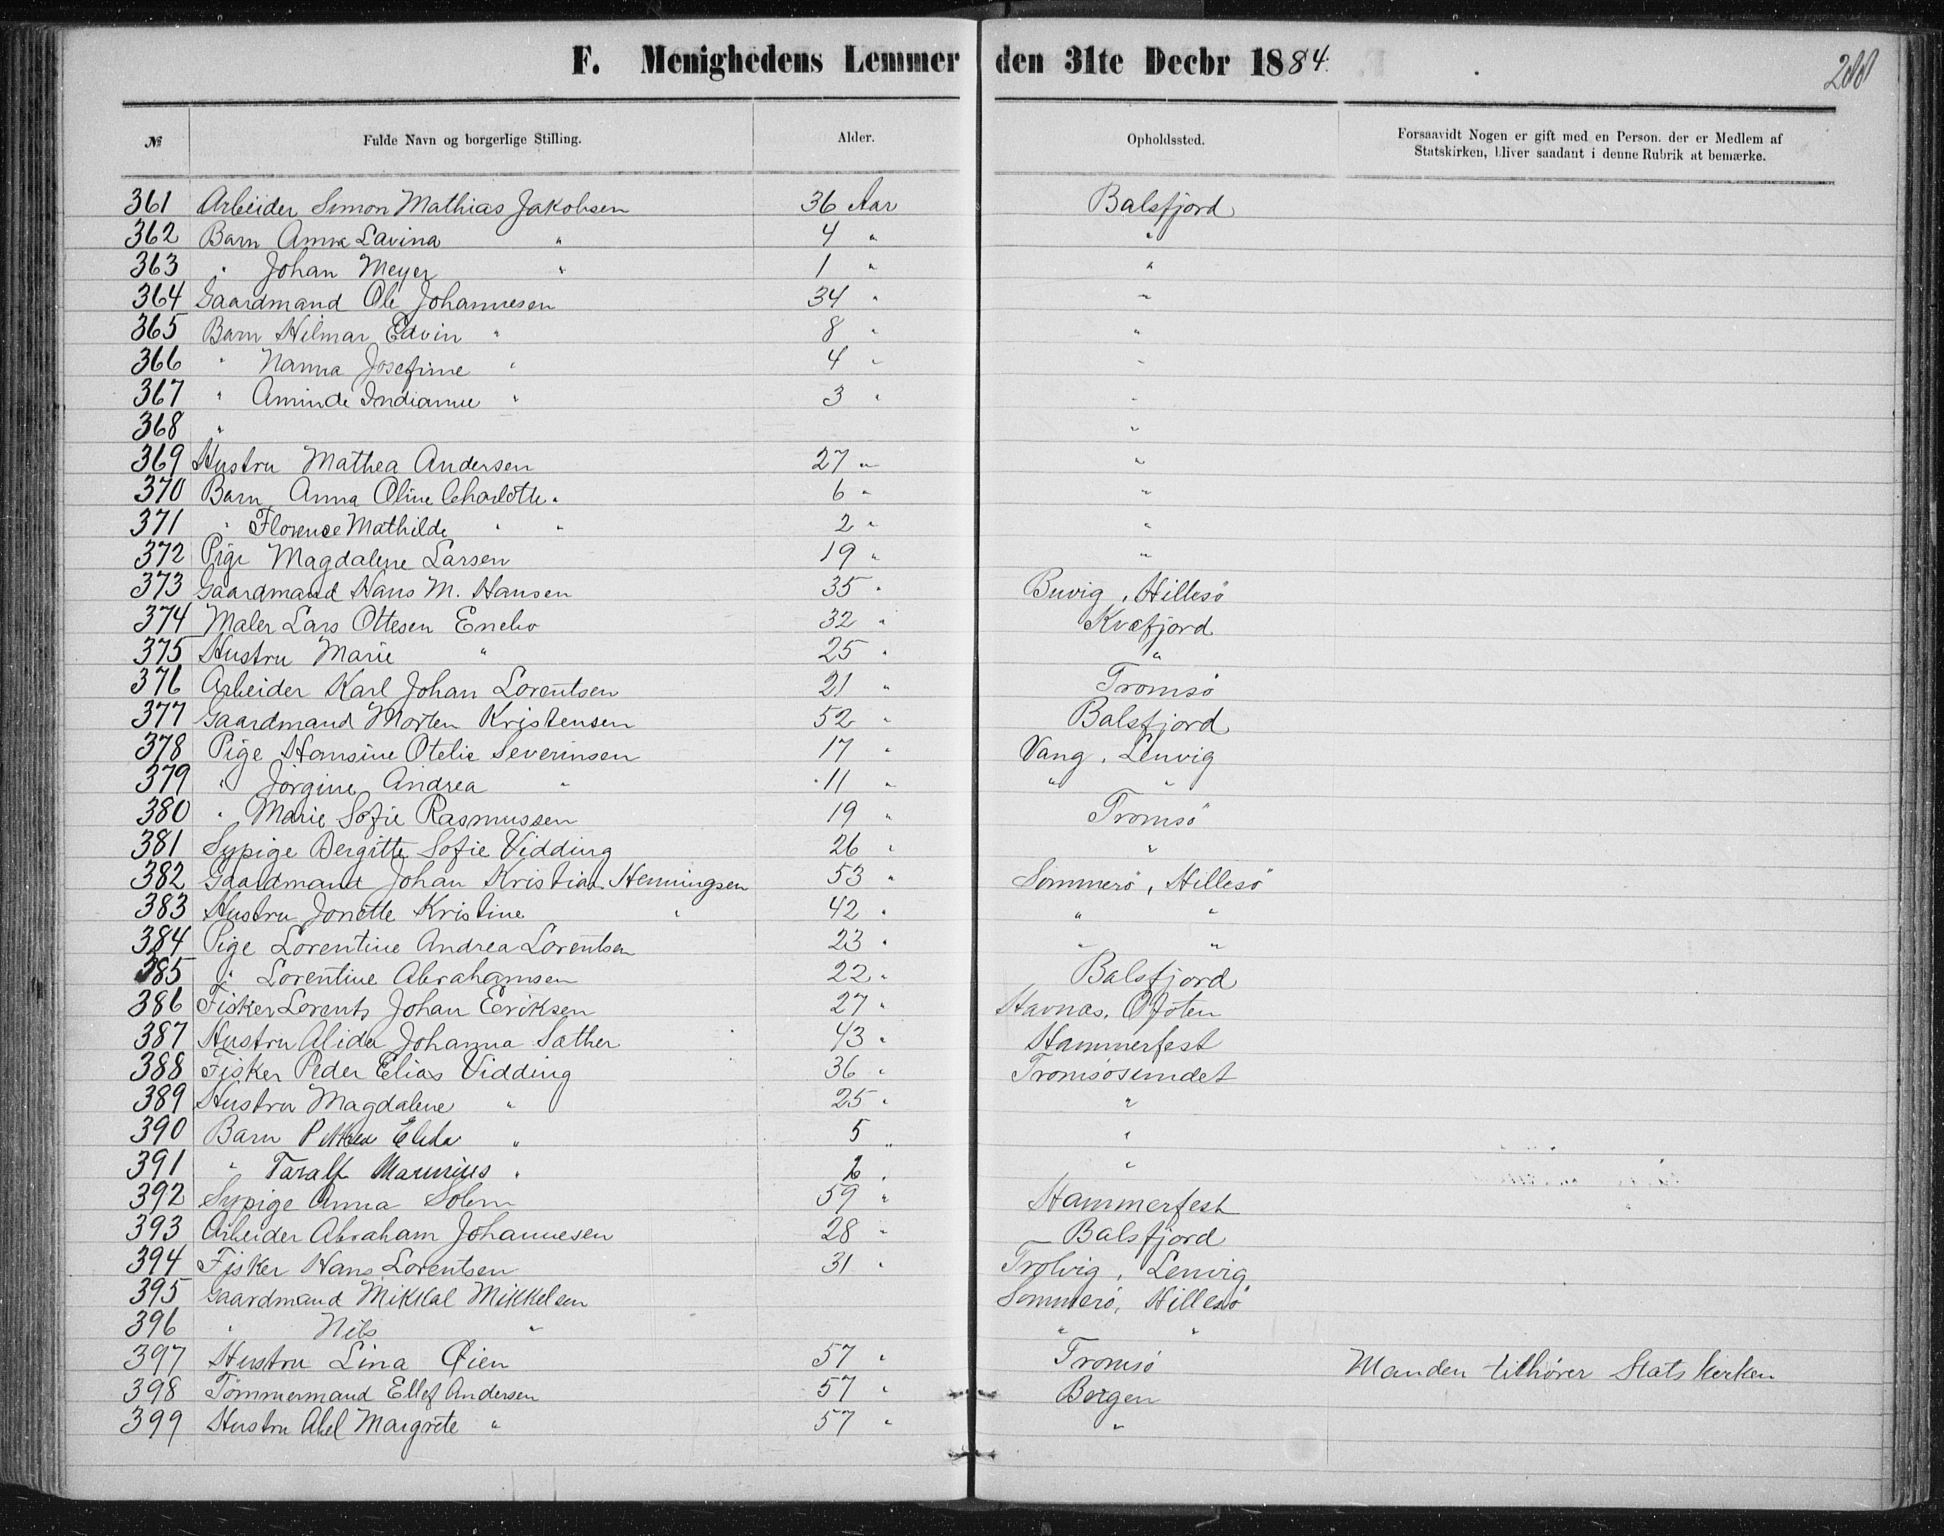 F. Menighedens Lemmer den 31te Decbr 1884.
№ Fulde Navn og borgerlige Stilling. Alder. Opholdssted. Forsaavidt Nogen er gift med en Person. der er Medlem af
Statskirken, bliver saadant i denne Rubrik at bemærke.
361 Arbeider Simon Mathias Jakobsen 36 Aar Balsfjord
362 Barn Anna Lavina " 4 " "
363 " Johan Meyer " 1 " "
364 Gaardmand Ole Johannesen 34 " "
365 Barn Hilmar Edvin " 8 " "
366 " Nanna Josefine " 4 " "
367 " Aminde Indianne " 3 " "
368 " "
369 Hustru Mathea Andersen 27 " "
370 Barn Anna Oline Charlotte " 6 " "
371 " Florence Mathilde " " 2 " "
372 Pige Magdalene Larsen 19 " "
373 Gaardmand Hans M. Hansen 35 " Buvig, Hillesö
374 Maler Lars Ottesen Enebo 32 " Kvæfjord
375 Hustru Marie " 25 " "
376 Arbeider Karl Johan Lorentsen 21 " Tromsö
377 Gaardmand Morten Kristensen 52 " Balsfjord
378 Pige Hansine Otelie Severinsen 17 " Vang, Lenvig
379 " Jörgine Andrea " 11 " " "
380 " Marie Sofie Rasmussen 19 " Tromsö
381 Sypige Bergitte Sofie Vidding 26 " "
382 Gaardmand Johan Kristian Henningsen 53 " Sommerö, Hillesö
383 Hustru Jonette Kristine " 42 " " "
384 Pige Lorentine Andrea Lorentsen 23 " " "
385 " Lorentine Abrahamsen 22 " Balsfjord
386 Fisker Lorents Johan Eriksen 27 " Havnæs, Ofoten
387 Hustru Alida Johanna Sæther 43 " Hammerfest
388 Fisker Peder Elias Vidding 36 " Tromsösundet
389 Hustru Magdalene " 25 " "
390 Barn Petrea Elida " 5 " "
391 " Taralf Marinius " 2 " "
392 Sypige Anna Solem 59 " Hammerfest
393 Arbeider Abraham Johannesen 28 " Balsfjord
394 Fisker Hans Lorentsen 31 " Trolvig, Lenvig
395 Gaardmand Mikkal Mikkelsen Sommerö, Hillesö
396 " Nils " " "
397 Hustru Lina Øien 57 " Tromsö Manden tilhører Statskirken
398 Tömmermand Ellef Andersen 57 " Bergen
399 Hustru Abel Margrete " 57 " "